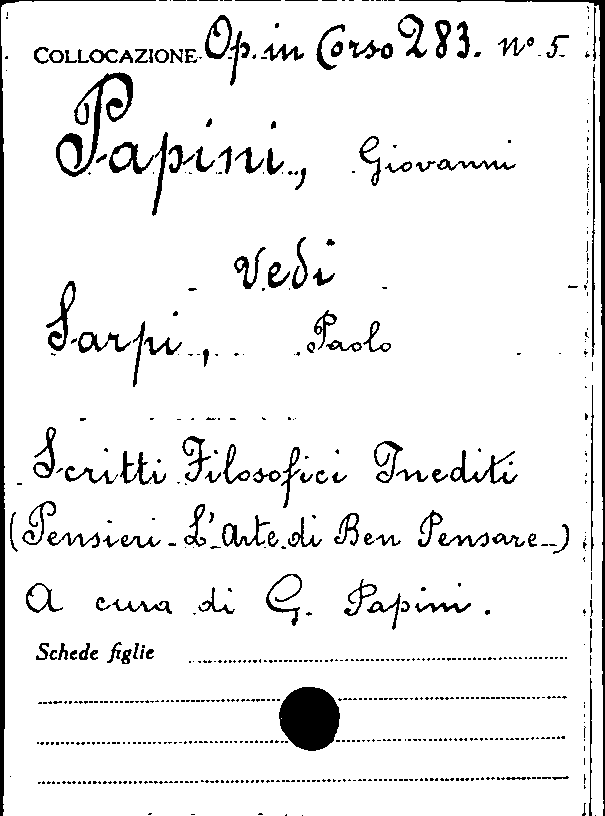 COLLOCAZIONE Op. in Corso 283. n° 5
Papini, Giovanni
Vedi
Sarpi, Paolo
Scritti Filosofici Inediti
(Pensieri - L'Arte di Ben Pensare -)
A cura di G. Papini.
Schede figlie